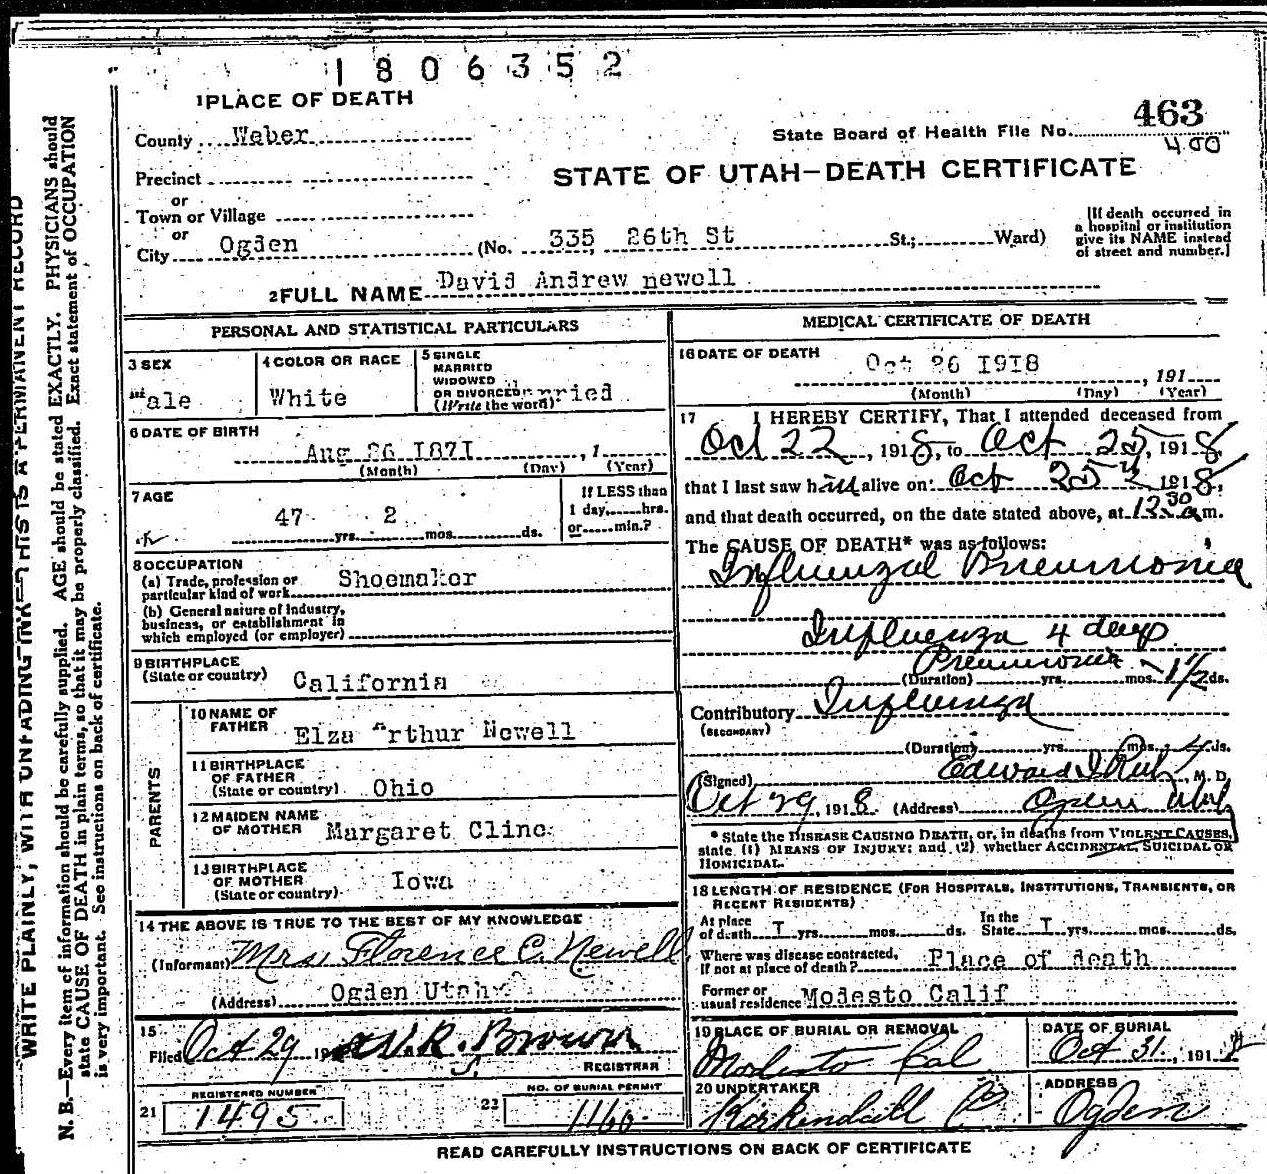 1806352
1 PLACE OF DEATH
463
County Weber
State Board of Health File No.
400
Precinct
STATE OF UTAH—DEATH CERTIFICATE
or
Town or Village
or
City Ogden (No. 335, 26th St St.; Ward)
[If death occurred in
a hospital or institution
give its NAME instead
of street and number.]
2 FULL NAME David Andrew newell
PERSONAL AND STATISTICAL PARTICULARS
3 SEX
Male
4 COLOR OR RACE
White
5 SINGLE
MARRIED
WIDOWED
OR DIVORCED
(Write the word)
rried
6 DATE OF BIRTH
Aug 26 I87I, 1
(Month) (Day) (Year)
7 AGE
47 yrs. 2 mos. ds.
If LESS than
1 day, hrs.
or min.?
8 OCCUPATION
(a) Trade, profession or
particular kind of work Shoemaker
(b) General nature of Industry,
business, or establishment in
which employed (or employer)
9 BIRTHPLACE
(State or country) California
PARENTS
10 NAME OF
FATHER Elza Arthur Newell
11 BIRTHPLACE
OF FATHER
(State or country) Ohio
12 MAIDEN NAME
OF MOTHER Margaret Cline
13 BIRTHPLACE
OF MOTHER
(State or country) Iowa
14 THE ABOVE IS TRUE TO THE BEST OF MY KNOWLEDGE
(Informant) Mrs. Florence C. Newell
(Address) Ogden Utah
15
Filed Oct 29 W.R. Brown
REGISTRAR
REGISTERED NUMBER
21 1495
NO. OF BURIAL PERMIT
22 1160
MEDICAL CERTIFICATE OF DEATH
16 DATE OF DEATH
Oct 26 I9I8, 191
(Month) (Day) (Year)
17 I HEREBY CERTIFY, That I attended deceased from
Oct 22, 1918, to Oct 25, 1918,
that I last saw him alive on Oct 25, 1918,
and that death occurred, on the date stated above, at 12 30 a m.
The CAUSE OF DEATH* was as follows:
Influenzal Pneumonia
Influenza 4 days
Pneumonia
(Duration) yrs. mos. 1 1/2 ds.
Contributory Influenza
(SECONDARY)
(Duration) yrs. mos. 4 ds.
(Signed) Edward I Rich, M. D.
Oct 29, 1918. (Address) Ogden Utah
* State the DISEASE CAUSING DEATH, or, in deaths from VIOLENT CAUSES,
state (1) MEANS OF INJURY; and (2) whether ACCIDENTAL, SUICIDAL OR
HOMICIDAL.
18 LENGTH OF RESIDENCE (FOR HOSPITALS, INSTITUTIONS, TRANSIENTS, OR
RECENT RESIDENTS)
At place
of death I yrs. mos. ds.
In the
State I yrs. mos. ds.
Where was disease contracted,
If not at place of death? Place of death
Former or
usual residence Modesto Calif
19 PLACE OF BURIAL OR REMOVAL
Modesto Cal
DATE OF BURIAL
Oct 31, 191
20 UNDERTAKER
Kirkendall Co
ADDRESS
Ogden
READ CAREFULLY INSTRUCTIONS ON BACK OF CERTIFICATE
WRITE PLAINLY, WITH UNFADING INK—THIS IS A PERMANENT RECORD
N. B.—Every item of information should be carefully supplied. AGE should be stated EXACTLY. PHYSICIANS should
state CAUSE OF DEATH in plain terms, so that it may be properly classified. Exact statement of OCCUPATION
is very important. See instructions on back of certificate.